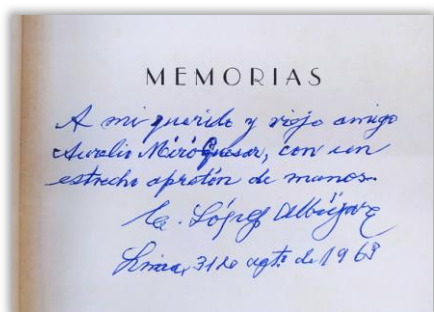 MEMORIAS
A mi querido y viejo amigo
Aurelio Miró Quesada, con un
estrecho apretón de manos.
E. López Albújar
Lima, 31 de agto de 1963